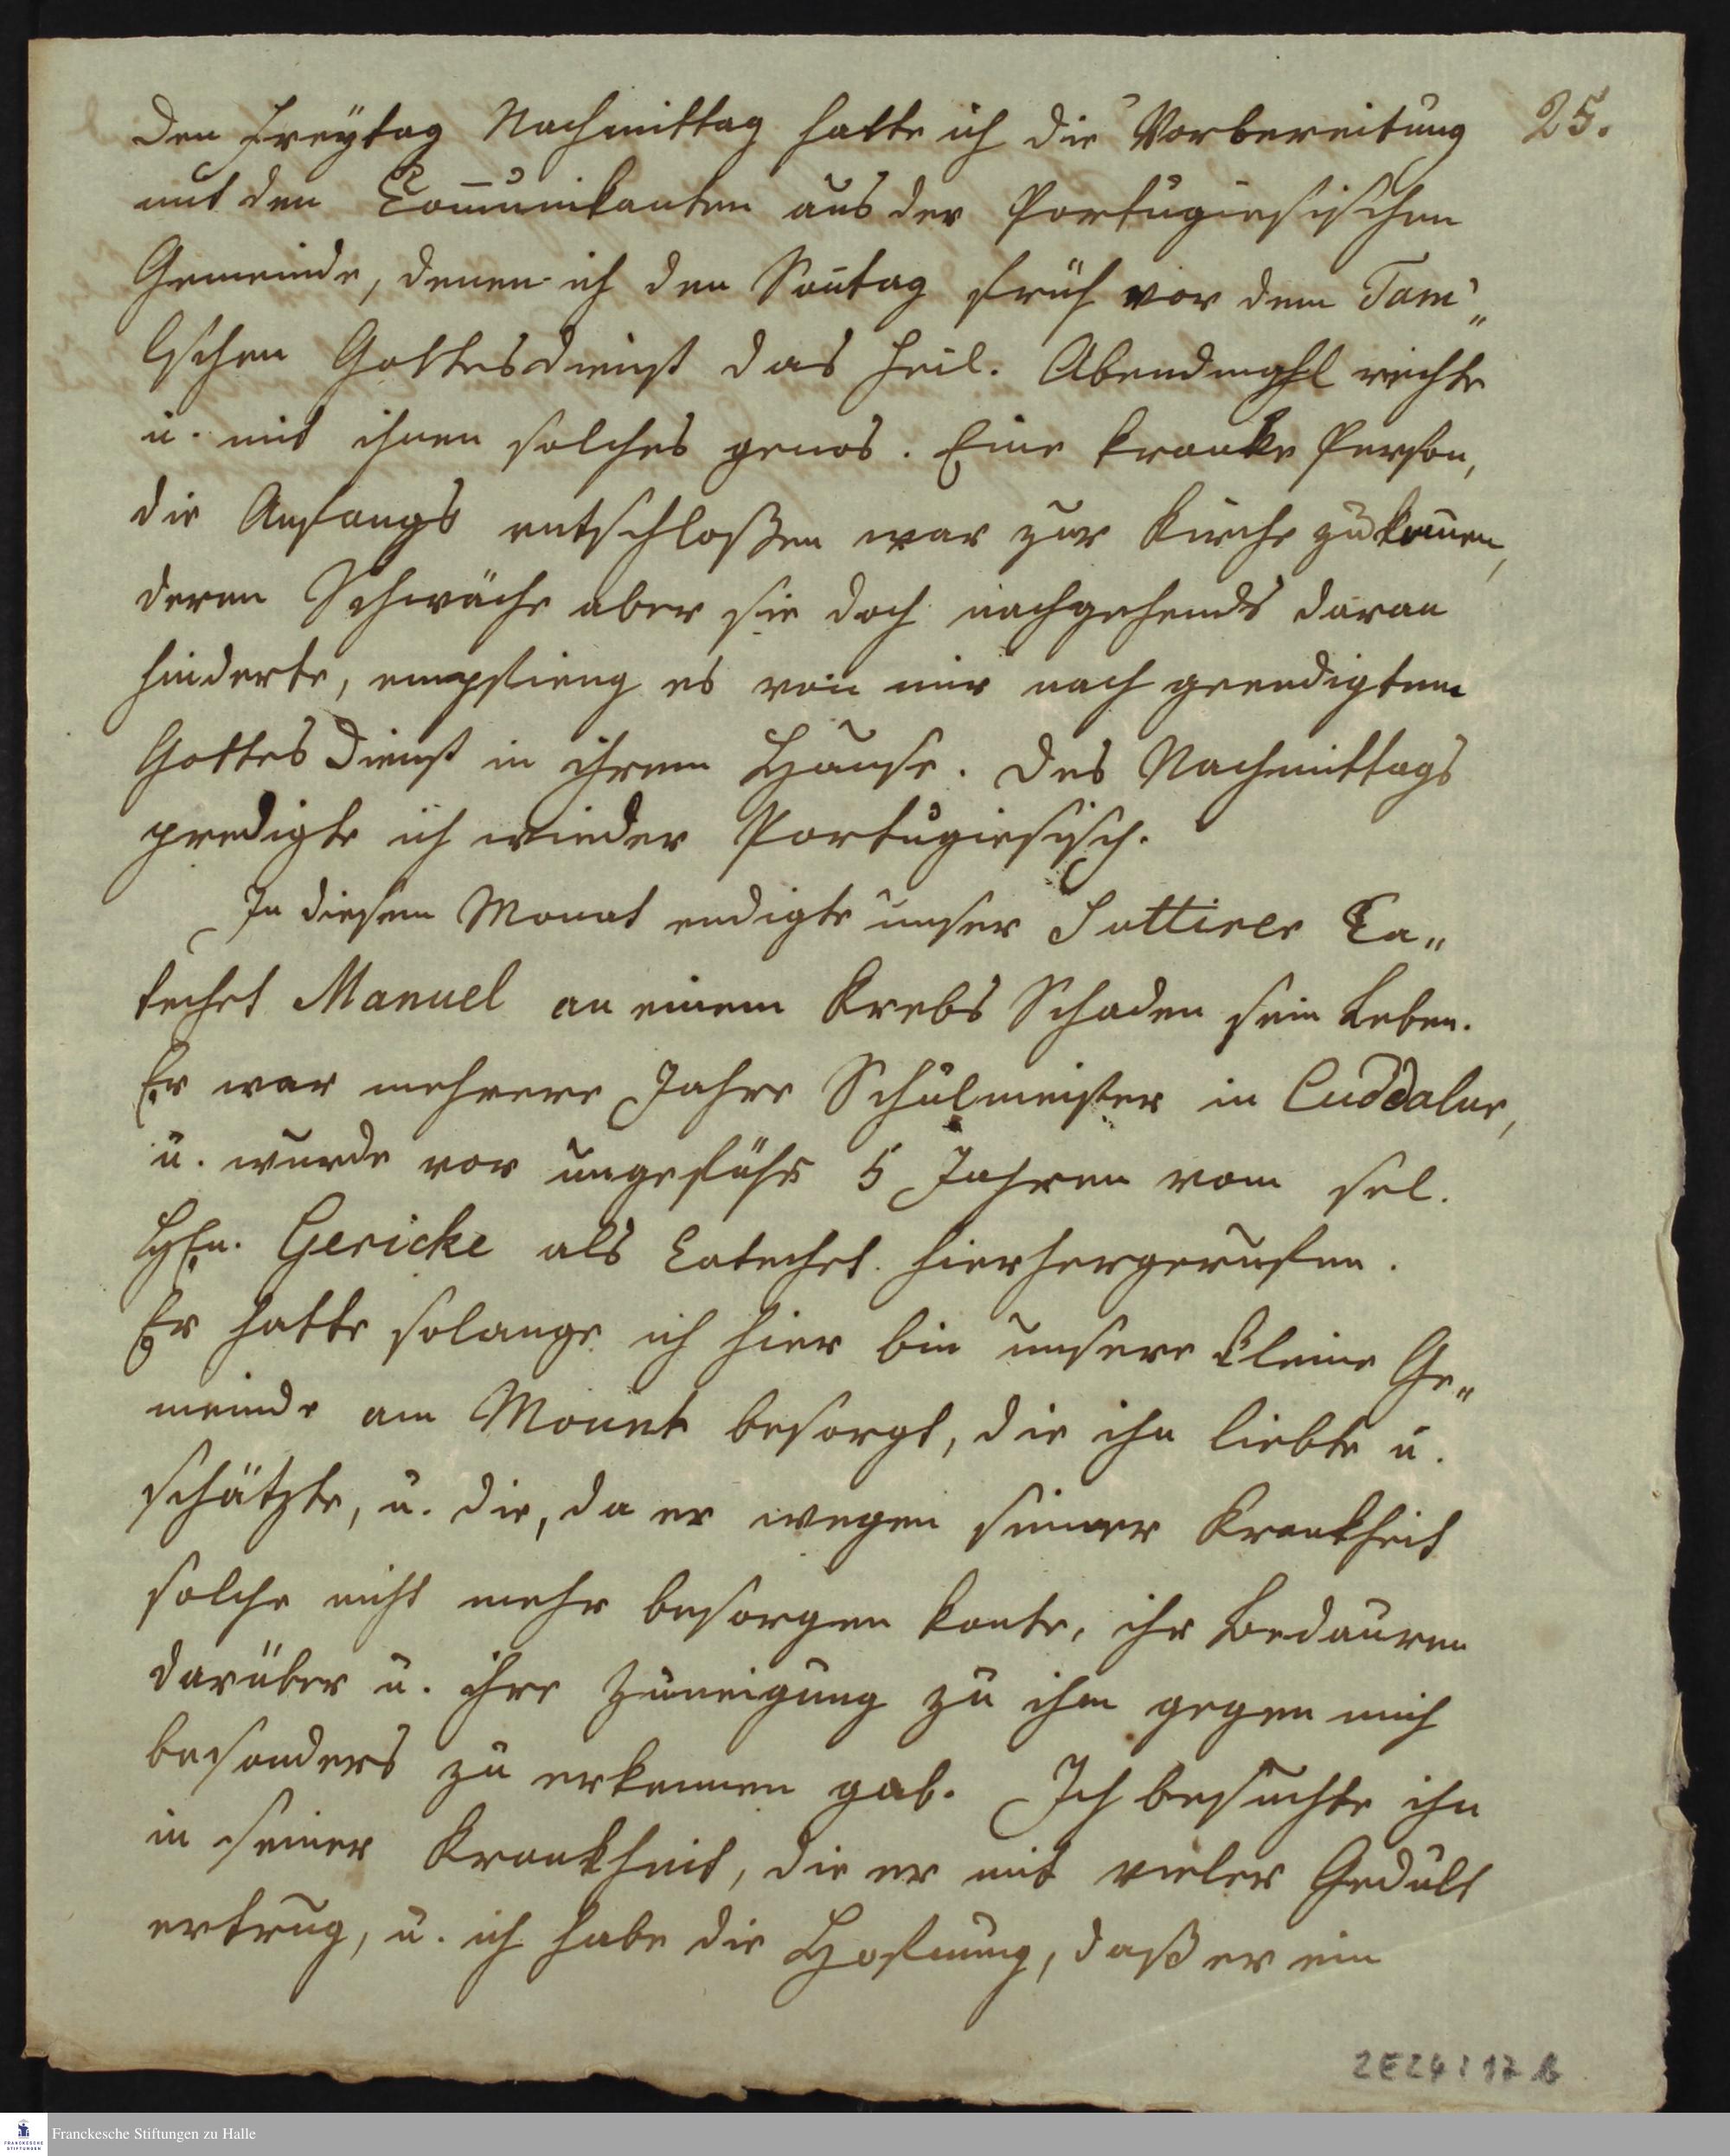 den Freÿtag Nachmittag hatte ich die Vorbereitung 25.
mit den Com̄unikanten aus der Portugiesischen
Gemeinde, denen ich den Son̄tag früh vor dem Tam„
lschen Gottesdienst das heil. Abendmahl reichte
u. mit ihnen solches genos. Eine kranke Person,
die Anfangs entschloßen war zur Kirche zu kom̄en,
deren Schwäche aber sie doch nachgehends daran
hinderte, empfieng es von mir nach geendigtem
Gottesdienst in ihrem Hause. Des Nachmittags
predigte ich wieder Portugiesisch.
In diesem Monat endigte unser Ca„
techet Manuel an einem Krebs Schaden sein Leben.
Er war mehrere Jahre Schulmeister in Cuddalur,
u. wurde vor ungefähr 5 Jahren vom sel.
Hrn. Gericke als Catechet hierhergerufen.
Er hatte solange ich hier bin unsere kleine Ge„
meinde am Mount besorgt, die ihn liebte u.
schätzte, u. die, da er wegen seiner Krankheit
solche nicht mehr besorgen konte, ihr Bedauren
darüber u. ihre Zuneigung zu ihm gegen mich
besonders zu erkennen gab. Ich besuchte ihn
in seiner Krankheit, die er mit vieler Gedult
ertrug, u. ich habe die Hofnung, daß er ein
Franckesche Stiftungen zu Halle